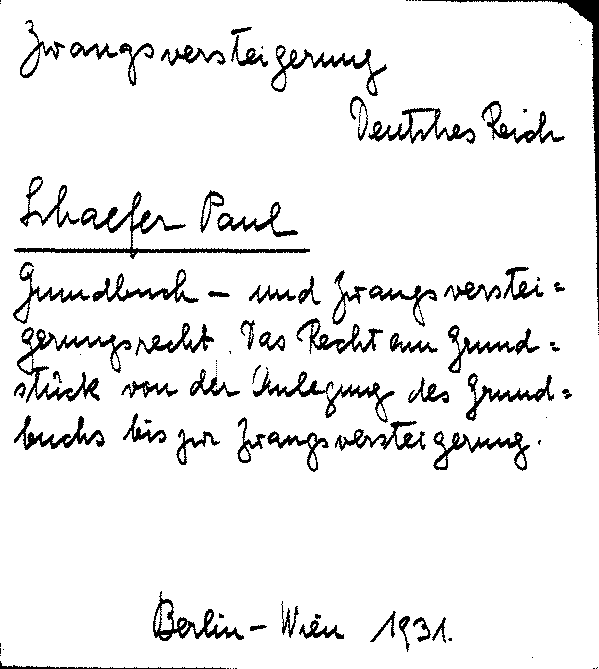 Zwangsversteigerung
Deutsches Reich
Schaefer Paul
Grundbuch- und Zwangsverstei=
gerungsrecht. Das Recht am Grund=
stück von der Anlegung des Grund=
buchs bis zur Zwangsversteigerung.
Berlin-Wien 1931.